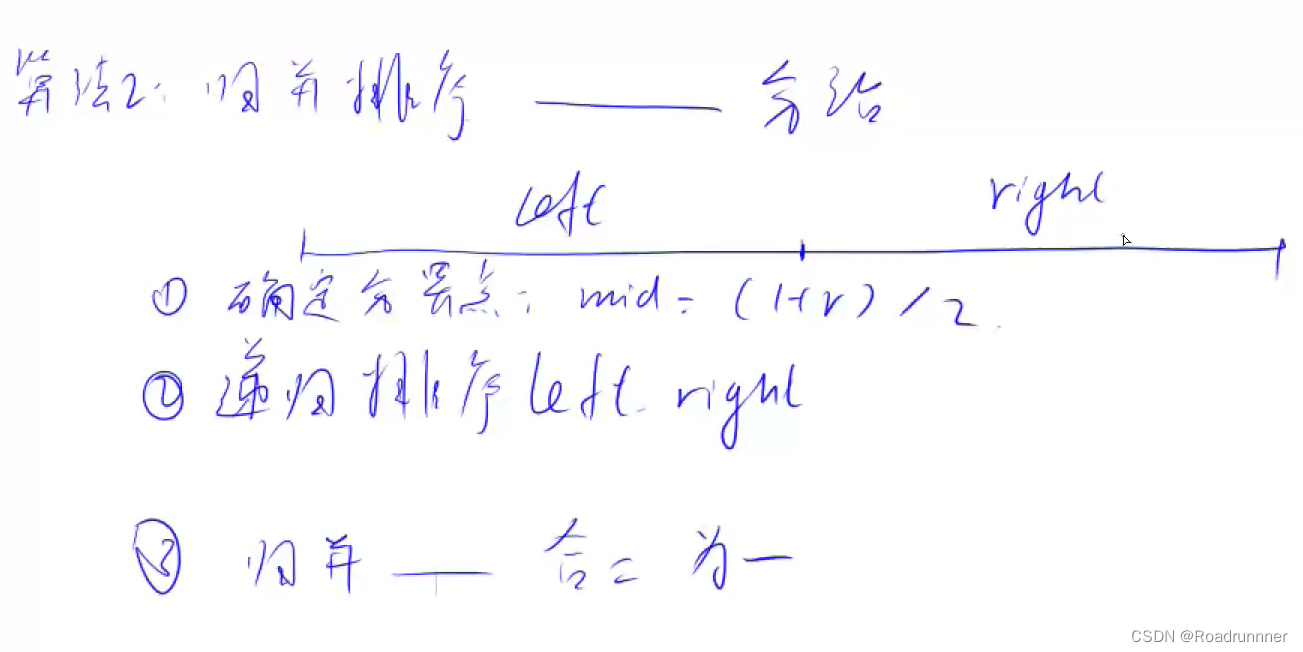 算法2: 归并排序 —— 分治
left right
① 确定分界点: mid = (l+r)/2
② 递归排序left. right
③ 归并 —— 合二为一
CSDN @Roadrunnner